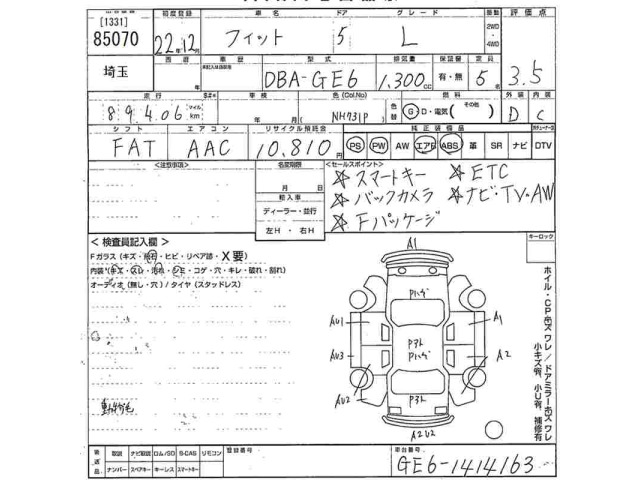 [1331] 初度登録 車名 ドア グレード 駆動 評価点
85070 22年12月 フィット 5 L 2WD・4WD 3.5
埼玉 車歴 型式 排気量 保証書 定員
年 DBA-GE6 1,300cc 有・無 5
走行 車検 色(Col.No) 燃料 外装 内装
89,406 マイル km 年 月 (NH731P) 色替 G・D・電気( )その他 D C
シフト エアコン リサイクル預託金 純正装備品
FAT AAC 10,810 PS PW AW エアB ABS 革 SR ナビ DTV
<注意事項> 名変期限 <セールスポイント>
月 日 ☆スマートキー ☆ETC
輸入車 ☆バックカメラ ☆ナビ・TV・AW
ディーラー・並行 ☆Fパッケージ
左H・右H
<検査員記入欄> キーロック
Fガラス(キズ・飛石・ヒビ・リペア跡・X要)
内装(キズ・スレ・汚れ・シミ・コゲ・穴・キレ・破れ・割れ)
オーディオ(無し・穴)/タイヤ(スタッドレス)
A1
Pハゲ
AU1 A1
Pアト
AU3 Pハゲ A2
AU2 Pアト
A2U2
ホイル・CP ホズワレ/ドアミラー ホズワレ
小キズ有、小U有、補修有
後送品 取説 ナビ取説 ロム/SD B-CAS リモコン 登録番号 車台番号
ナンバー スペアキー キーレス スマートキー GE6-1414163